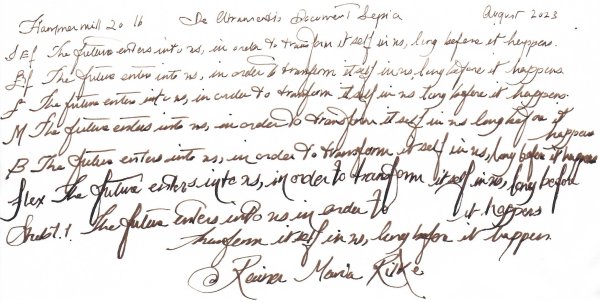 Hammermill 20 lb De Atramentis Document Sepia August 2023
SEf The future enters into us, in order to transform itself in us, long before it happens.
Ef The future enters into us, in order to transform itself in us, long before it happens.
F The future enters into us, in order to transform itself in us long before it happens.
M The future enters into us, in order to transform itself in us long before it happens
B The future enters into us, in order to transform itself in us, long before it happens
flex The future enters into us, in order to transform itself in us, long before it happens
Stub 1.1 The future enters into us in order to
transform itself in us, long before it happens.
Rainer Maria Rilke